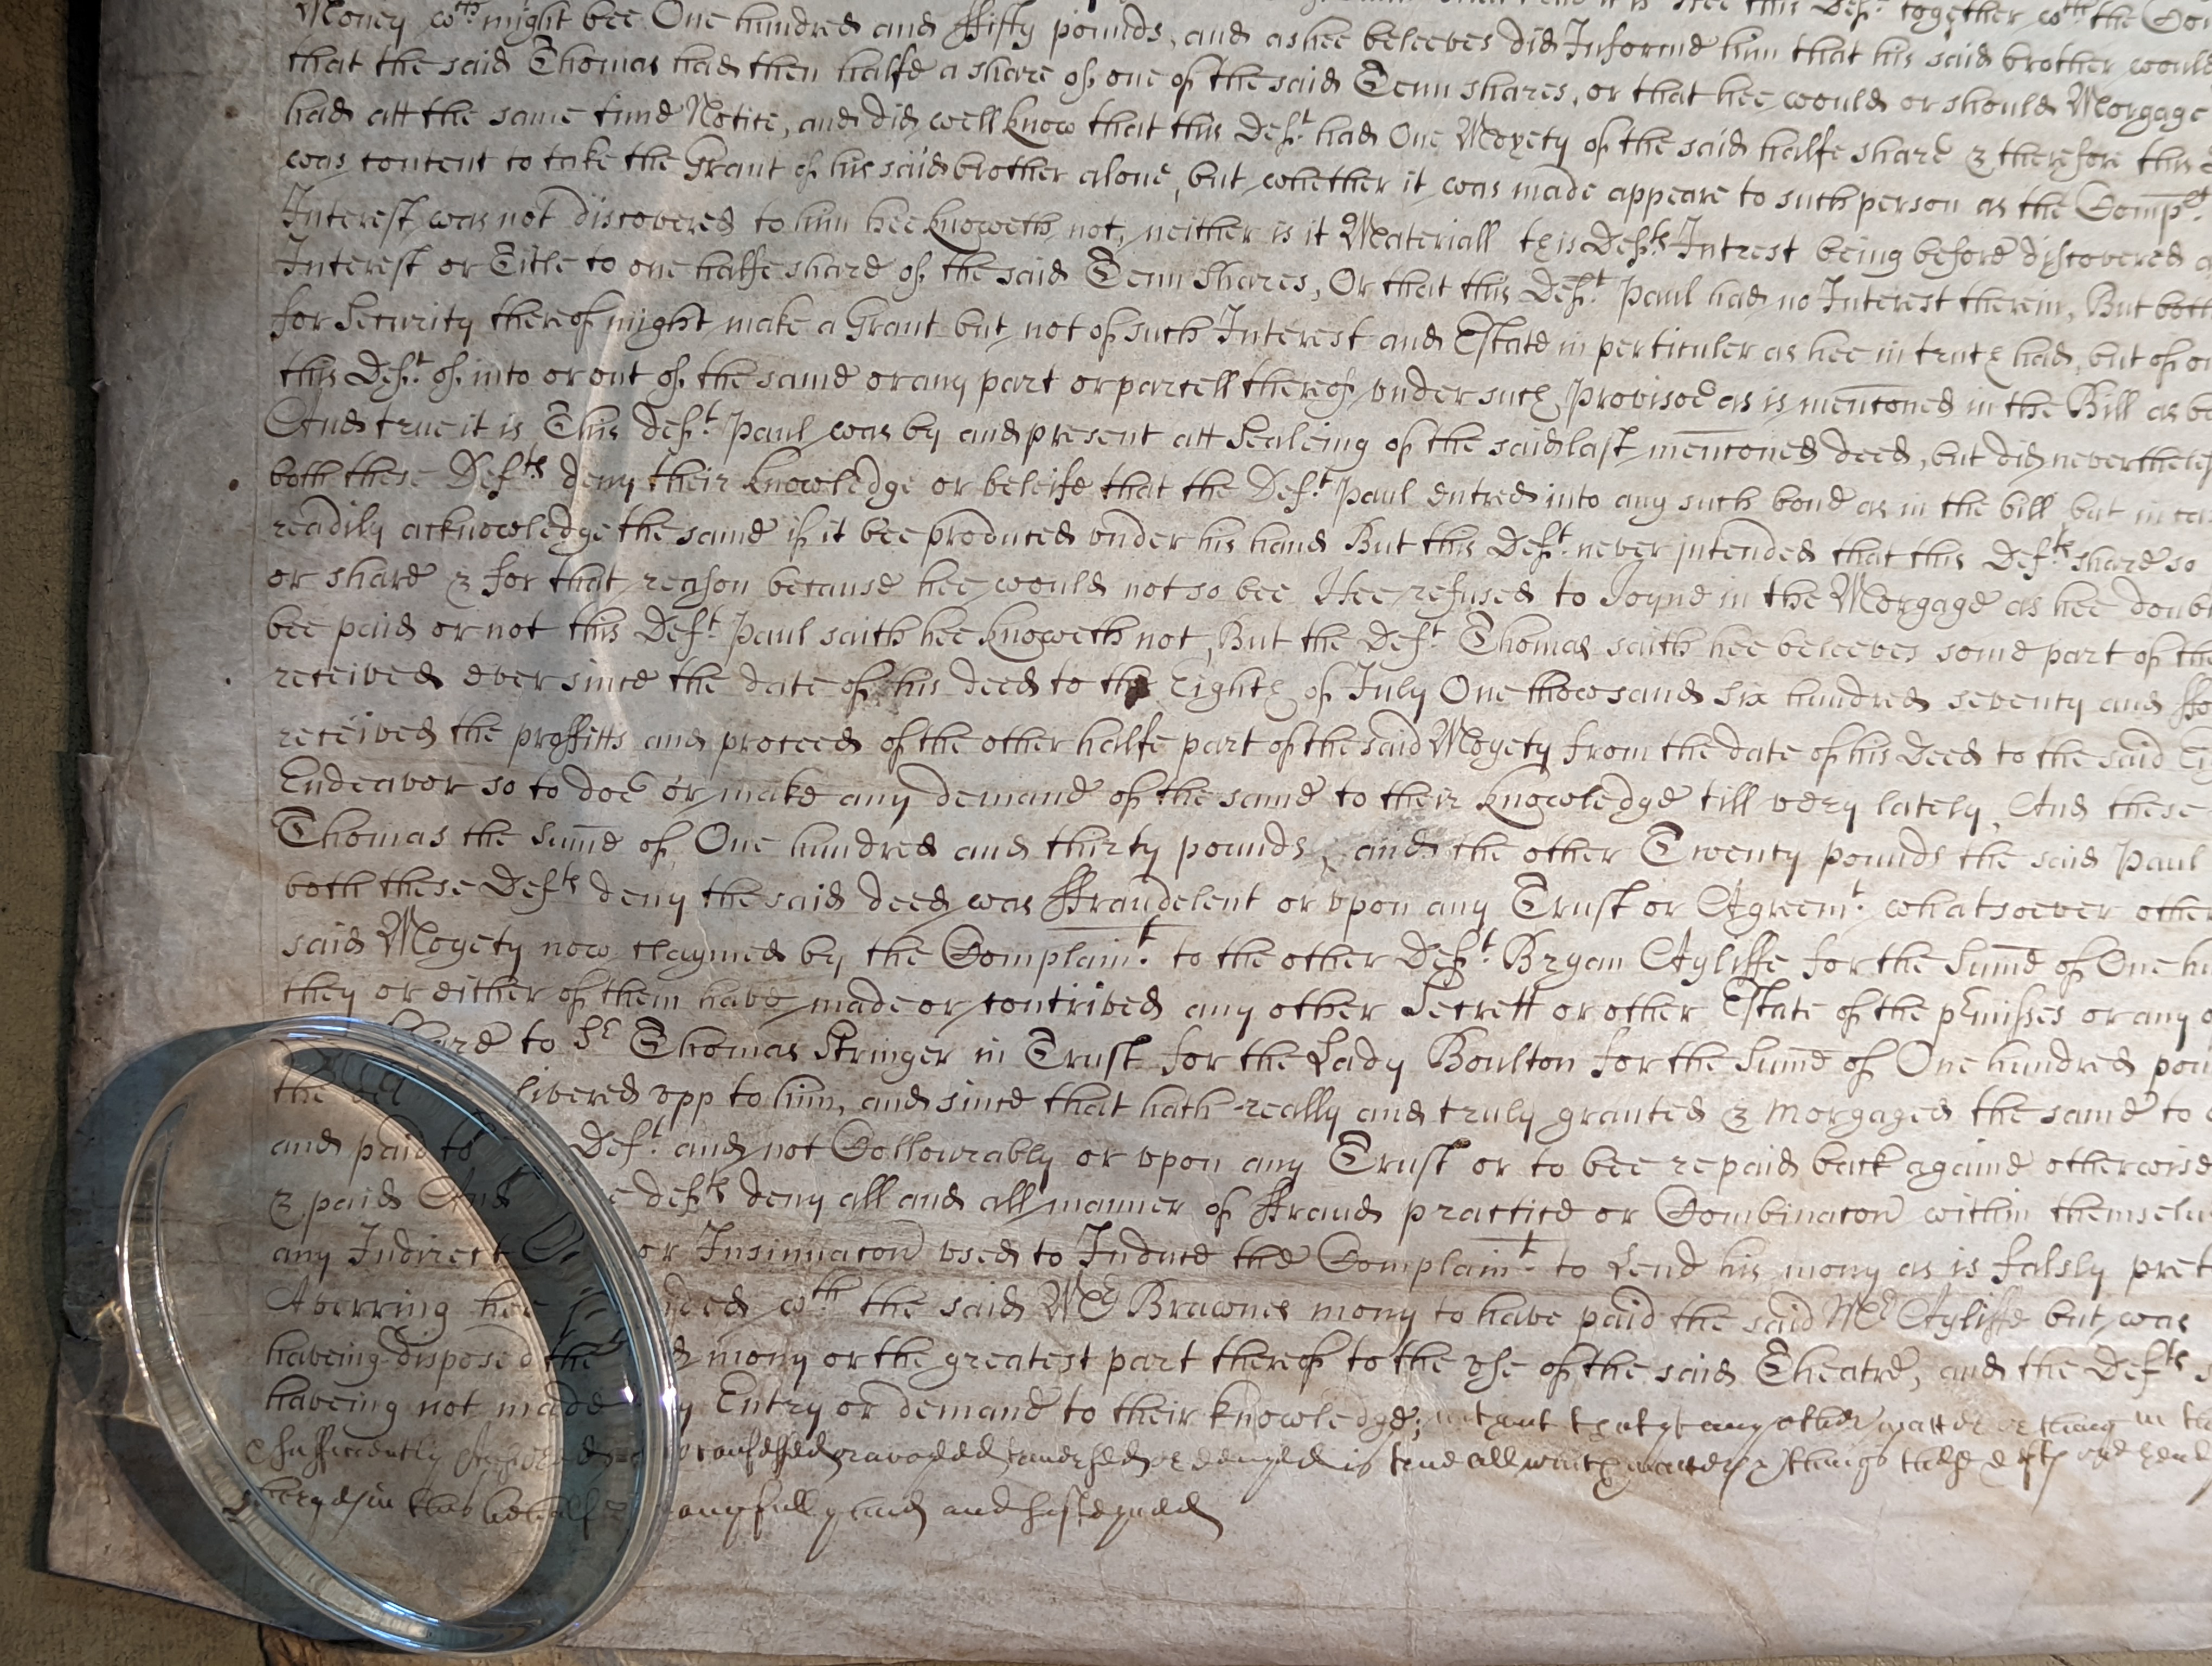 Money wth might bee One hundred and ffifty pounds, and as hee beleeves did Informe him that his said brother would
that the said Thomas had then halfe a share of one of the said Tenn shares, or that hee would or should Morgage
had att the same time Notice, and did well know that this Deft. had One Moyety of the said halfe share & therefore this
was content to take the Grant of his said brother alone, but whether it was made appeare to such person as the Complt.
Interest was not discovered to him hee knoweth not, neither is it Materiall this Defts Intrest being before discovered
Interest or Title to one halfe share of the said Tenn shares, Or that this Deft. Paul had no Interest therein, But both
for Security thereof might make a Grant but not of such Interest and Estate in perticuler as hee in truth had, but of
this Deft. of into or out of the same or any part or parcell thereof under such Provisoe as is menconed in the Bill as
And true it is This Deft. Paul was by and present att Sealeing of the said last menconed deed, but did neverthe
both these Defts deny their knowledge or beleife that the Deft. Paul entred into any such bond as in the bill but in
readily acknowledge the same if it bee produced under his hand But this Deft. never intended that this Defts share so
or share & for that reason because hee would not so bee Hee refused to Joyne in the Morgage as hee
bee paid or not this Deft. Paul saith hee knoweth not, But the Deft. Thomas saith hee beleeves some part of the
received ever since the date of his deed to the Eighth of July One thowsand six hundred seventy and
received the proffitts and proceed of the other halfe part of the said Moyety from the date of his Deed to the said
Endeavor so to doe or make any demand of the same to their knowledge till very lately, And these
Thomas the Summe of One hundred and thirty pounds, and the other Twenty pounds the said Paul
both these Defts deny the said deed was ffraudelent or vpon any Trust or Agreemt. whatsoever
said Moyety now claymed by the Complaint. to the other Deft. Bryan Ayliffe for the Summe of One
they or either of them have made or contrived any other Secrett or other Estate of the pʳmisses or any
to Sr Thomas Stringer in Trust for the Lady Boulton for the Summe of One hundred
the livered vpp to him, and since that hath really and truly granted & morgaged the same to
and paid to Deft. and not Collourably or vpon any Trust or to bee repaid back againe otherwise
& paid And defts deny all and all manner of ffraud practice or Combinacon within
any Indirect or Insinuacon vsed to Induce the Complaint. to Lend his mony as is falsly
Averring hee wth the said Mr Brawnes mony to have paid the said Mr Ayliffe but was
haveing disposed the mony or the greatest part thereof to the vse of the said Theatre, and the Defts
haveing not made Entry or demand to their knowledge; without that yt any other matter or thing in
sufficiently confessed or avoyded traversed or denyed is true all which matters & things these defts are
in this behalfe and